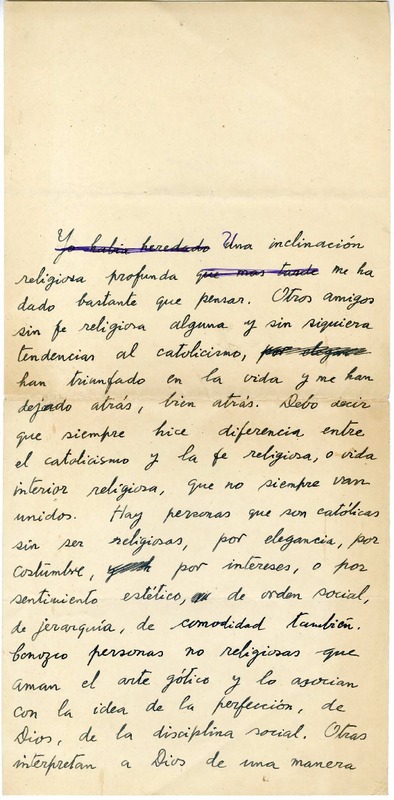 Yo habia heredado Una inclinación
religiosa profunda que mas tarde me ha
dado bastante que pensar. Otros amigos
sin fe religiosa alguna y sin siquiera
tendencias al catolicismo, por elegancia
han triunfado en la vida y me han
dejado atrás, bien atrás. Debo decir
que siempre hice diferencia entre
el catolicismo y la fe religiosa, o vida
interior religiosa, que no siempre van
unidos. Hay personas que son católicas
sin ser religiosas, por elegancia, por
costumbre, por intereses, o por
sentimiento estético, de orden social,
de jerarquía, de comodidad también.
Conozco personas no religiosas que
aman el arte gótico y lo asocian
con la idea de la perfección, de
Dios, de la disciplina social. Otras
interpretan a Dios de una manera